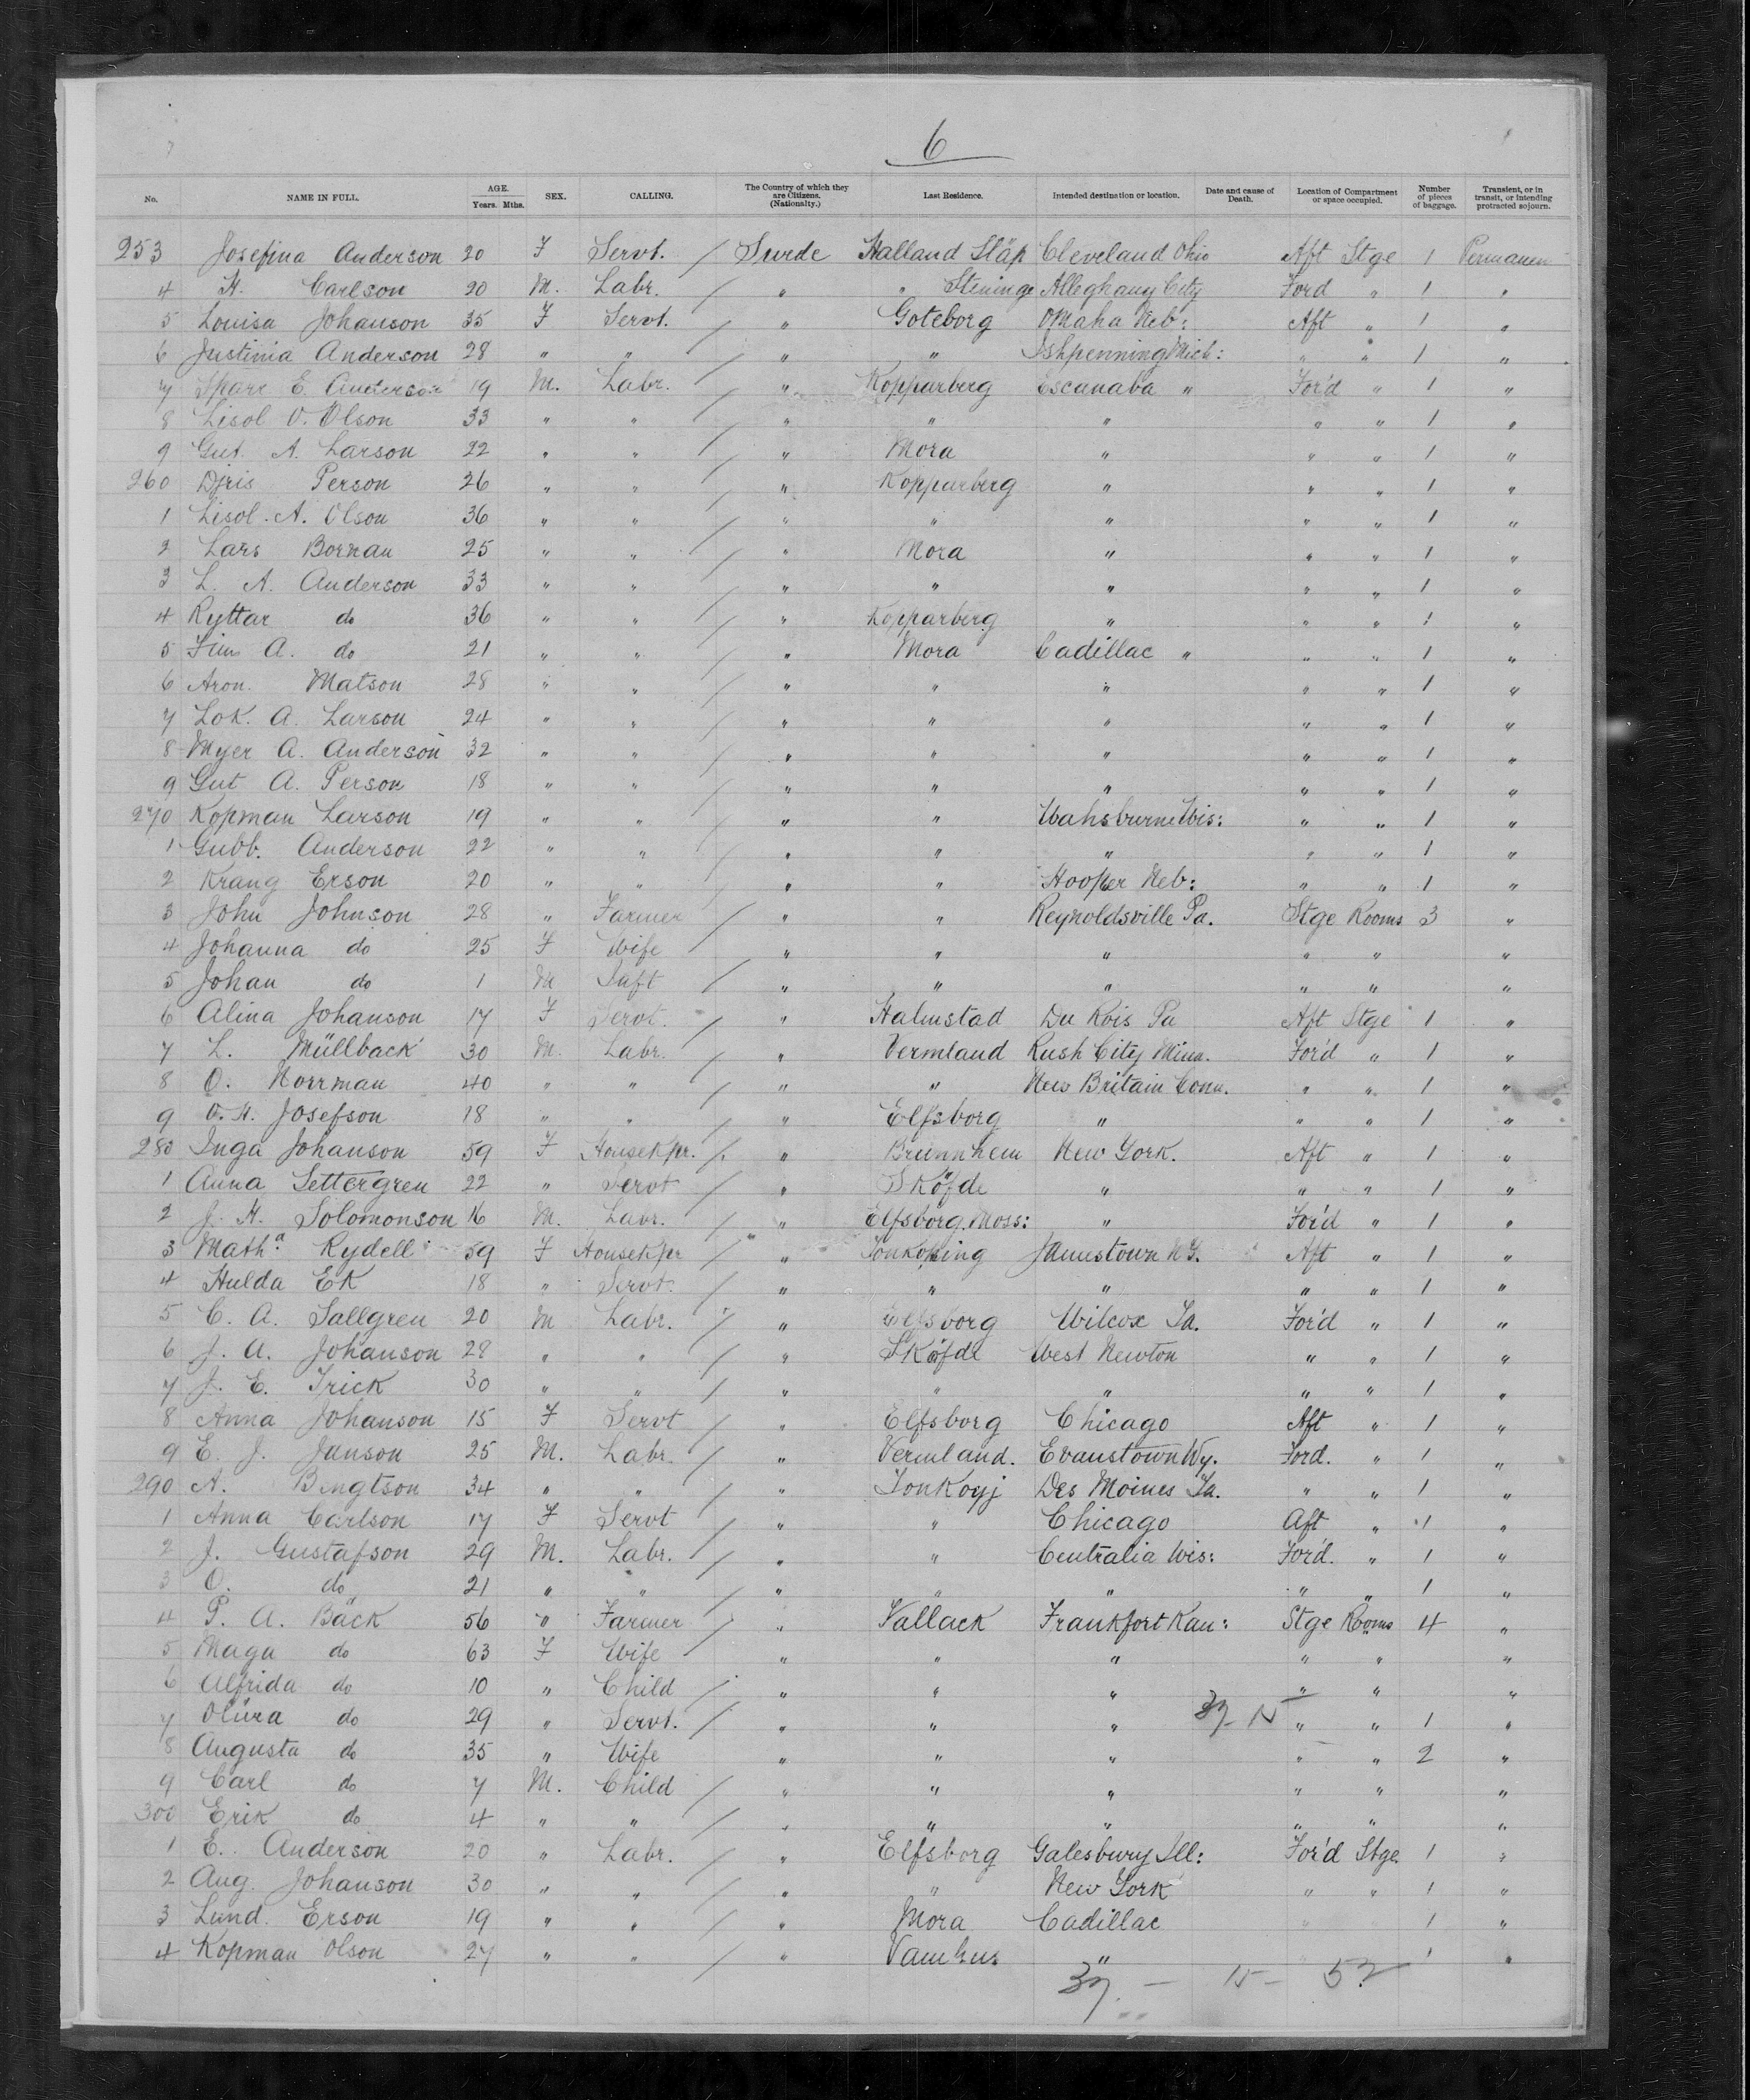 6
No. NAME IN FULL. AGE. Years. Mths. SEX. CALLING. The Country of which they are Citizens. (Nationalty.) Last Residence. Intended destination or location. Date and cause of Death. Location of Compartment or space occupied. Number of pieces of baggage. Transient, or in transit, or intending protracted sojourn.
253 Josefina Anderson 20 F Servt. / Swede Halland Släp Cleveland Ohio Aft Stge 1 Permanen
4 H. Carlson 20 M. Labr. / " " Steninge Alleghany City Ford " 1 "
5 Louisa Johanson 35 F Servt. / " Goteborg Omaha Neb: Aft " 1 "
6 Justinia Anderson 28 " " / " " Ishpenning Mich: " " 1 "
7 Sparr E. Anderson 19 M. Labr. / " Kopparberg Escanaba " For'd " 1 "
8 Lisol O. Olson 33 " " / " " " " " 1 "
9 Gut. A. Larson 22 " " / " Mora " " " 1 "
260 Djris Person 26 " " / " Kopparberg " " " 1 "
1 Lisol. A. Olson 36 " " / " " " " " 1 "
2 Lars Bornan 25 " " / " Mora " " " 1 "
3 L. A. Anderson 33 " " / " " " " " 1 "
4 Ryttar do 36 " " / " Kopparberg " " " 1 "
5 Fins A. do 21 " " / " Mora Cadillac " " " 1 "
6 Aron. Matson 28 " " / " " " " " 1 "
7 Lok. A. Larson 24 " " / " " " " " 1 "
8 Myer A. Anderson 32 " " / " " " " " 1 "
9 Gut A. Person 18 " " / " " " " " 1 "
270 Kopman Larson 19 " " / " " Wahsburne Wis: " " 1 "
1 Gubb. Anderson 22 " " / " " " " " 1 "
2 Krang Erson 20 " " / " " Hooper Neb: " " 1 "
3 John Johnson 28 " Farmer / " " Reynoldsville Pa. Stge Rooms 3 "
4 Johanna do 25 F Wife " " " " " "
5 Johan do 1 M Inft / " " " " " "
6 Alina Johanson 17 F Servt. / " Halmstad Du Rois Pa Aft Stge 1 "
7 L. Müllback 30 M. Labr. / " Vermland Rush City Minn. For'd " 1 "
8 O. Norrman 40 " " / " " New Britain Conn. " " 1 "
9 O. H. Josefson 18 " " / " Elfsborg " " " 1 "
280 Inga Johanson 59 F Housekpr. / " Brunnhem New York. Aft " 1 "
1 Anna Settergren 22 " Servt / " Sköfde " " " 1 "
2 J. H. Solomonson 16 M. Labr. / " Elfsborg. Moss: " For'd " 1 "
3 Math.a Rydell 59 F Housekpr " Jonkoping Jamestown N.Y. Aft " 1 "
4 Hulda Ek 18 " Servt. / " " " " " 1 "
5 C. A. Sallgren 20 M Labr. / " Elfsborg Wilcox Ia. For'd " 1 "
6 J. A. Johanson 28 " " / " Sköfde West Newton " " 1 "
7 J. E. Frick 30 " " / " " " " " 1 "
8 Anna Johanson 15 F Servt / " Elfsborg Chicago Aft " 1 "
9 E. J. Junson 25 M. Labr. / " Vermland. Evanstown Wy. Ford. " 1 "
290 A. Bengtson 34 " " / " Jonkopj Des Moines Ia. " " 1 "
1 Anna Carlson 17 F Servt / " " Chicago Aft " 1 "
2 J. Gustafson 29 M. Labr. / " " Centralia Wis: For'd. " 1 "
3 O. do 21 " " / " " " " " 1 "
4 P. A. Bäck 56 " Farmer / " Vallack Frankfort Kan: Stge Rooms 4 "
5 Maga do 63 F Wife / " " " " " "
6 Alfrida do 10 " Child / " " " " " "
7 Olivia do 29 " Servt. / " " " 37 - 15 " " 1 "
8 Augusta do 35 " Wife " " " " " 2 "
9 Carl do 7 M. Child / " " " " " "
300 Erik do 4 " " / " " " " " "
1 E. Anderson 20 " Labr. / " Elfsborg Galesbury Ill: For'd Stge. 1 "
2 Aug. Johanson 30 " " / " " New York " " 1 "
3 Lund. Erson 19 " " / " Mora Cadillac " 1 "
4 Kopman Olson 27 " " / " Vamhus " " 1 "
37. - 15 - 52